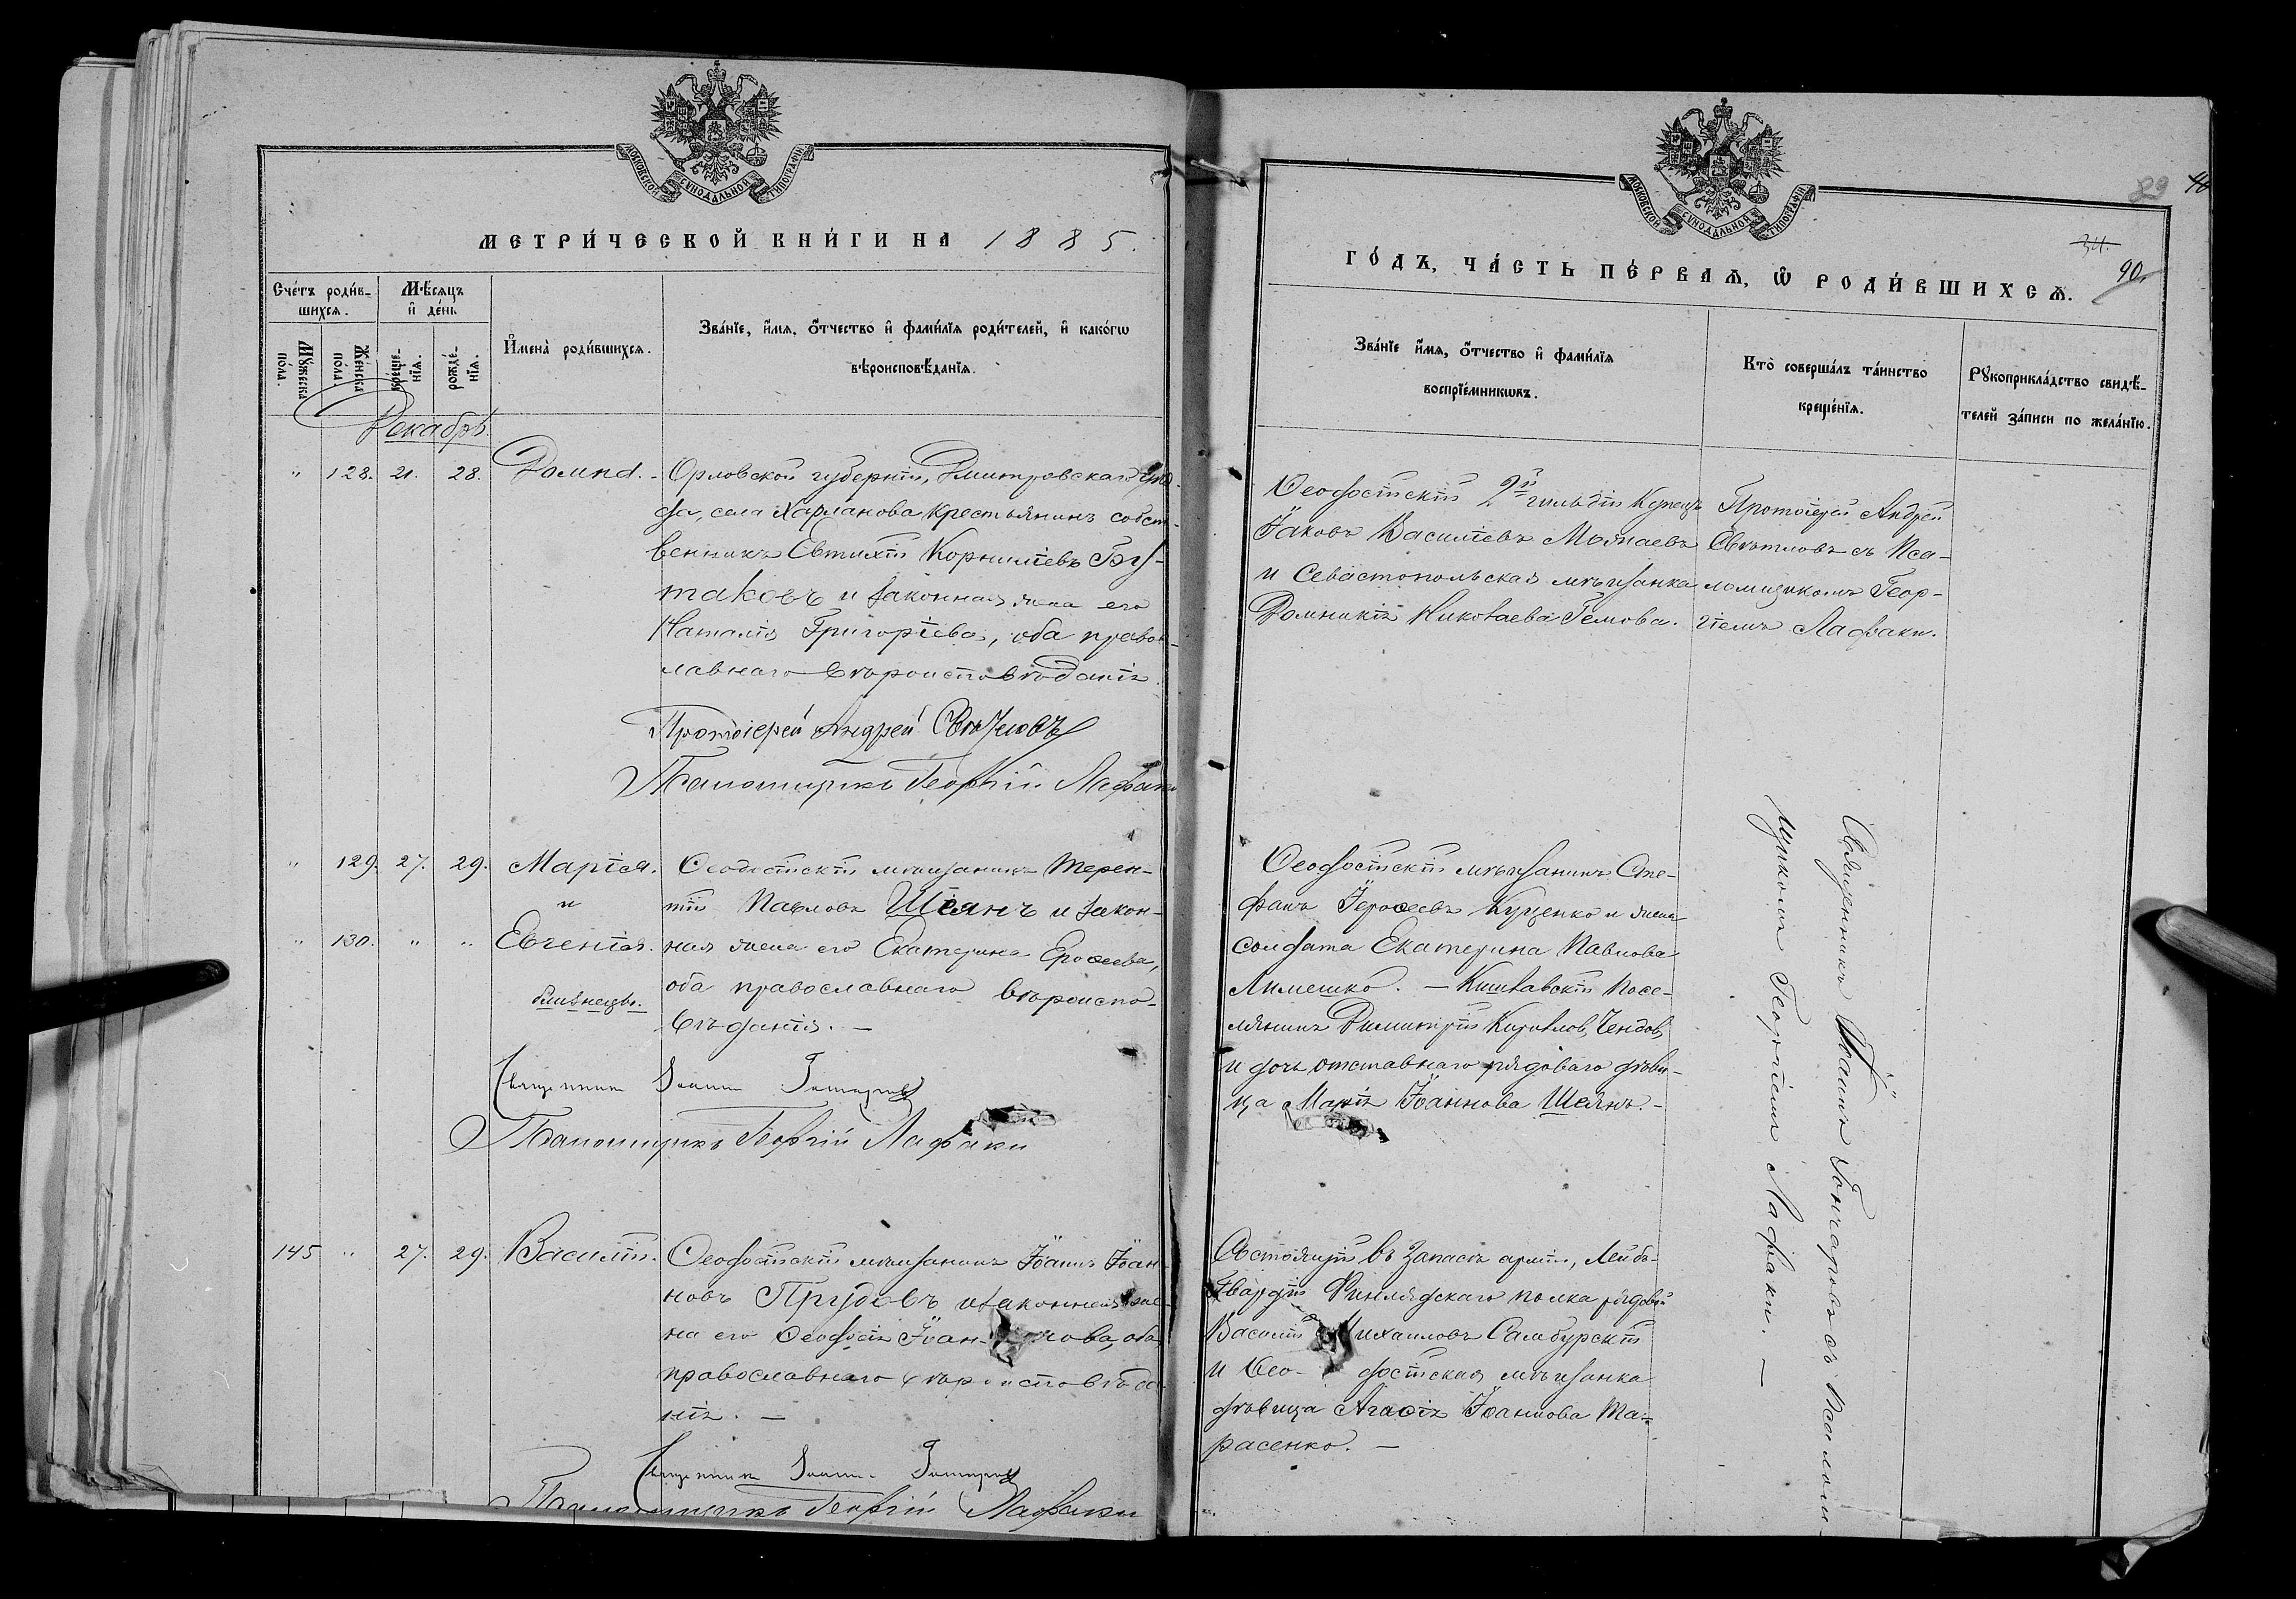 МОСКОВСКОЙ СѴНОДАЛЬНОЙ ТИПОГРАФІИ
МЕТРИ́ЧЕСКОЙ КНИ́ГИ НА 1885.
Сче́тъ роди́в-
шихсѧ.
Мѣ́сѧцъ
и҆ де́нь
Мꙋ́жеска
по́ла.
Же́нска
по́ла.
креще́-
нїѧ.
рожде́-
нїѧ.
И҆мена̀ роди́вшихсѧ.
Зва́нїе, и҆́мѧ, ѻ҆́тчество и҆ фами́лїѧ роди́телей, и҆ како́гѡ
вѣроисповѣ́данїѧ.
Декабрь
" 128. 21. 28. Домна. Орловской губерніи, Дмитровскаго уѣз-
да, села Харланова крестьянинъ собст-
венникъ Евтихій Корниліевъ Бу-
таковъ и законная жена его
Наталія Григоріева, оба правос-
лавнаго вѣроисповѣданія.
Протоіерей Андрей Свѣтловъ
Псаломщикъ Георгій Лафаки
" 129. 27. 29. Марія. Ѳеодосійскій мѣщанинъ Терен-
и тій Павловъ Шіянъ и закон-
" 130. " " Евгенія. ная жена его Екатерина Ероѳеева,
близнецы. оба православнаго вѣроиспо-
вѣданія. —
Священникъ Іоаннъ Гончаровъ
Псаломщикъ Георгій Лафаки
145 " 27. 29. Василій. Ѳеодосійскій мѣщанинъ Іоаннъ Іоан-
новъ Прудовъ и законная же-
на его Ѳеодосія Іоаннова, оба
православнаго вѣроисповѣда-
нія. —
Священникъ Іоаннъ Гончаровъ
Псаломщикъ Георгій Лафаки
МОСКОВСКОЙ СѴНОДАЛЬНОЙ ТИПОГРАФІИ
89
34.
90.
ГО́ДЪ, ЧА́СТЬ ПЕ́РВАѦ, Ѡ҆ РОДИ́ВШИХСѦ.
Зва́нїе и҆́мѧ, ѻ҆́тчество и҆ фами́лїѧ
воспрїе́мникѡвъ.
Кто̀ соверша́лъ та́инство
креще́нїѧ.
Рꙋкоприкла́дство свидѣ́-
телей за́писи по жела́нїю.
Ѳеодосійскій 2й гильдіи купецъ
Іаковъ Василіевъ Мамаевъ
и Севастопольская мѣщанка
Домникія Николаева Гемова.
Протоіерей Андрей
Свѣтловъ съ Пса-
ломщикомъ Геор-
гіемъ Лафаки.
Ѳеодосійскій мѣщанинъ Сте-
фанъ Іероѳеевъ Куценко и жена
солдата Екатерина Павлова
Лимешко. — Кишлавскій посе-
лянинъ Димитрій Кирилов. Чендов,
и дочь отставнаго рядоваго дѣви-
ца Марія Іоаннова Шеянъ. —
Священникъ Іоаннъ Гончаровъ съ Псалом-
щикомъ Георгіемъ Лафаки. —
Состоящій въ запасѣ арміи, Лейбъ-
Гвардіи Финляндскаго полка рядовой
Василій Михаиловъ Самбурскій
и Ѳео- досійская мѣщанка
дѣвица Агаѳія Іоаннова Та-
расенко. —